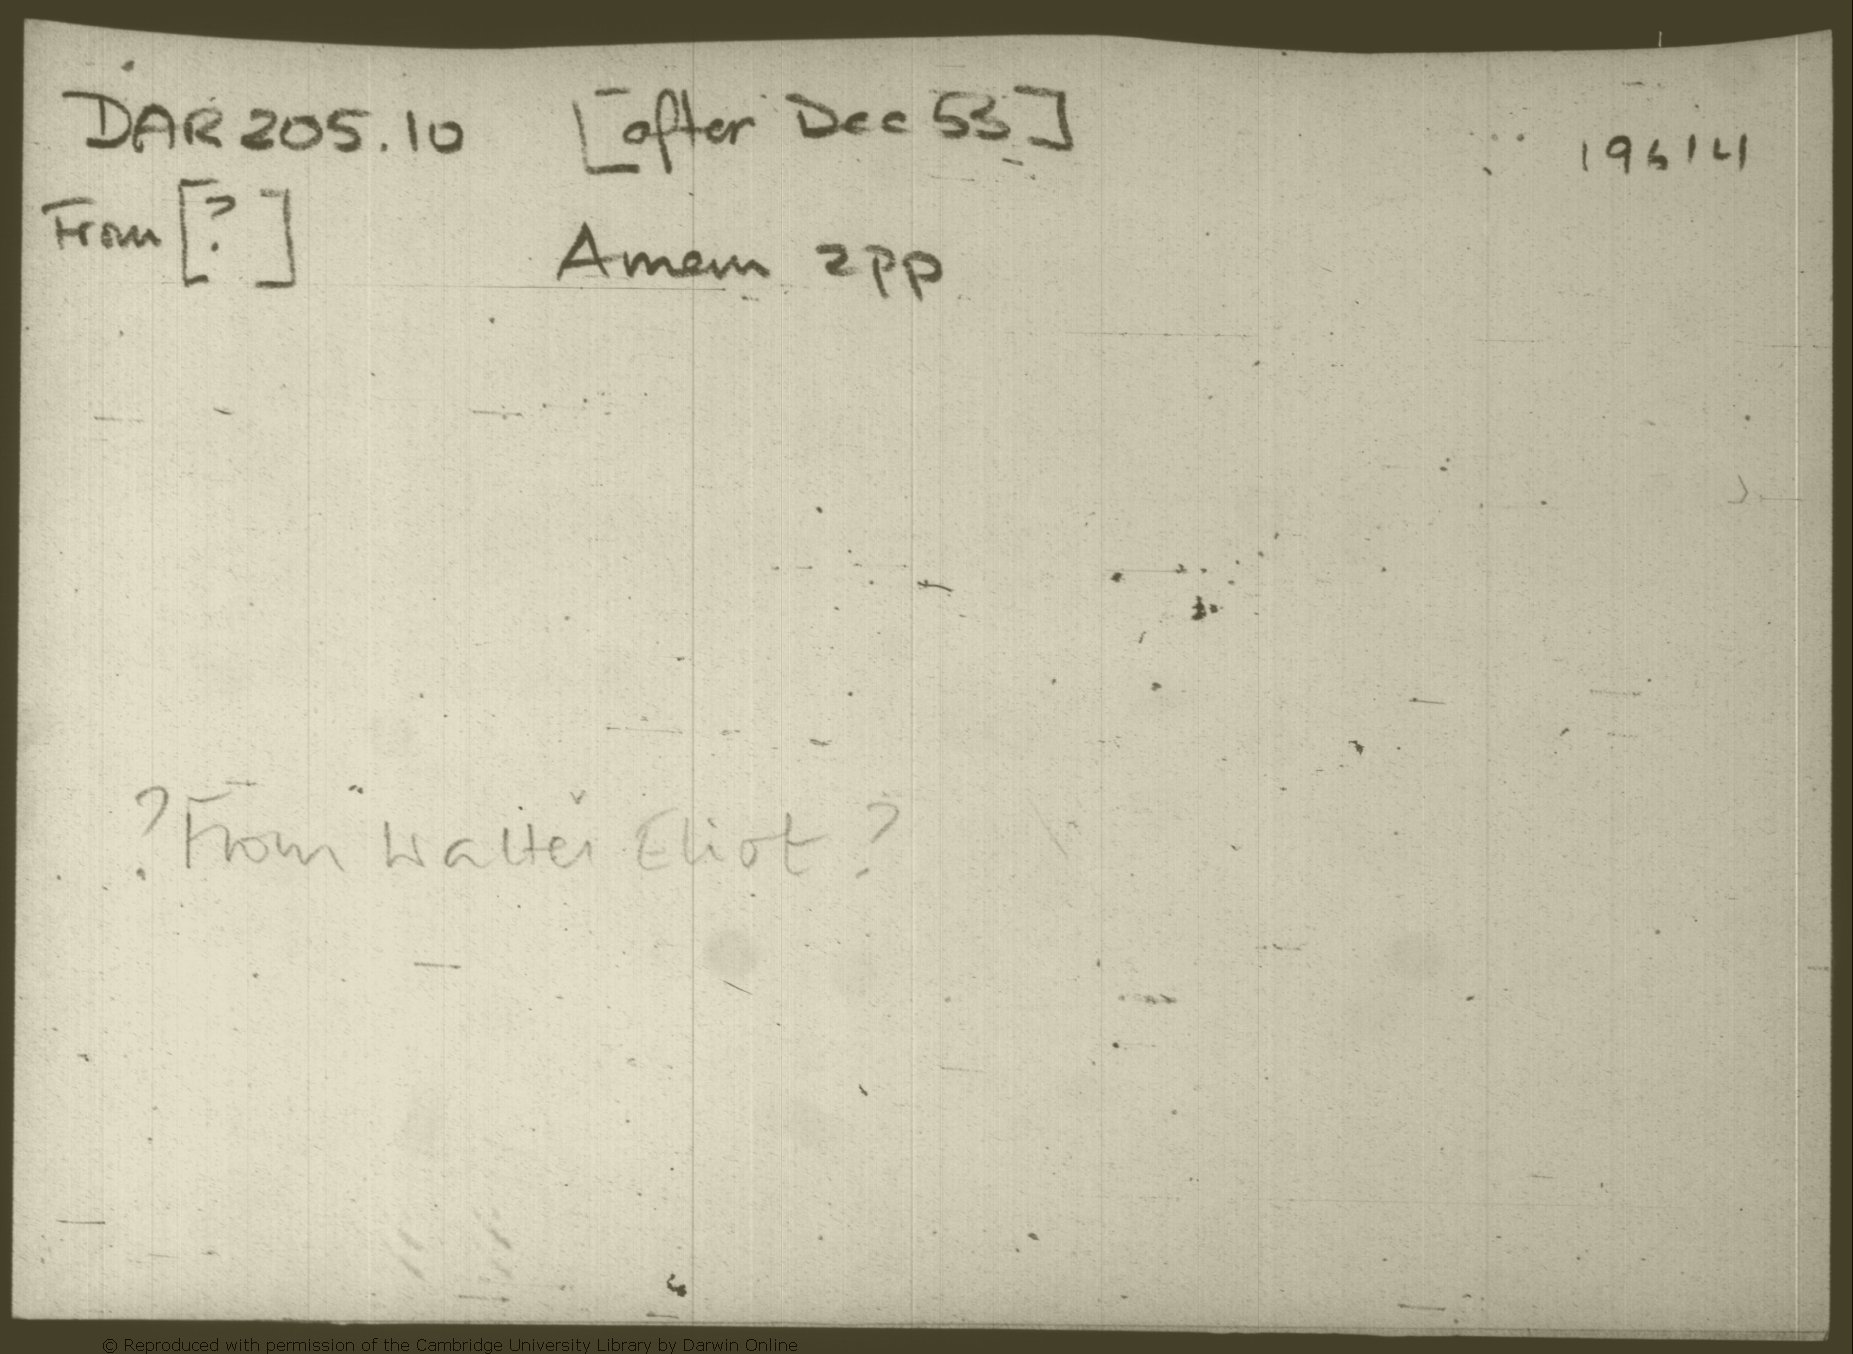 DAR 205.10 [after Dec 53] 19614
From [?] Amem 2pp
? From Walter Eliot ?
© Reproduced with permission of the Cambridge University Library by Darwin Online